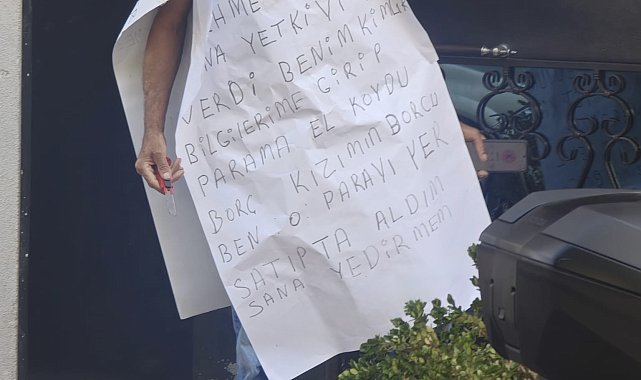 HME
NA YETKİYİ
VERDİ BENİM KİMLİK
BİLGİLERİME GİRİP
PARAMA EL KOYDU
BORÇ KIZIMIN BORCU
BEN O. PARAYI YER
SATIPTA ALDIM
SANA YEDİRMEM